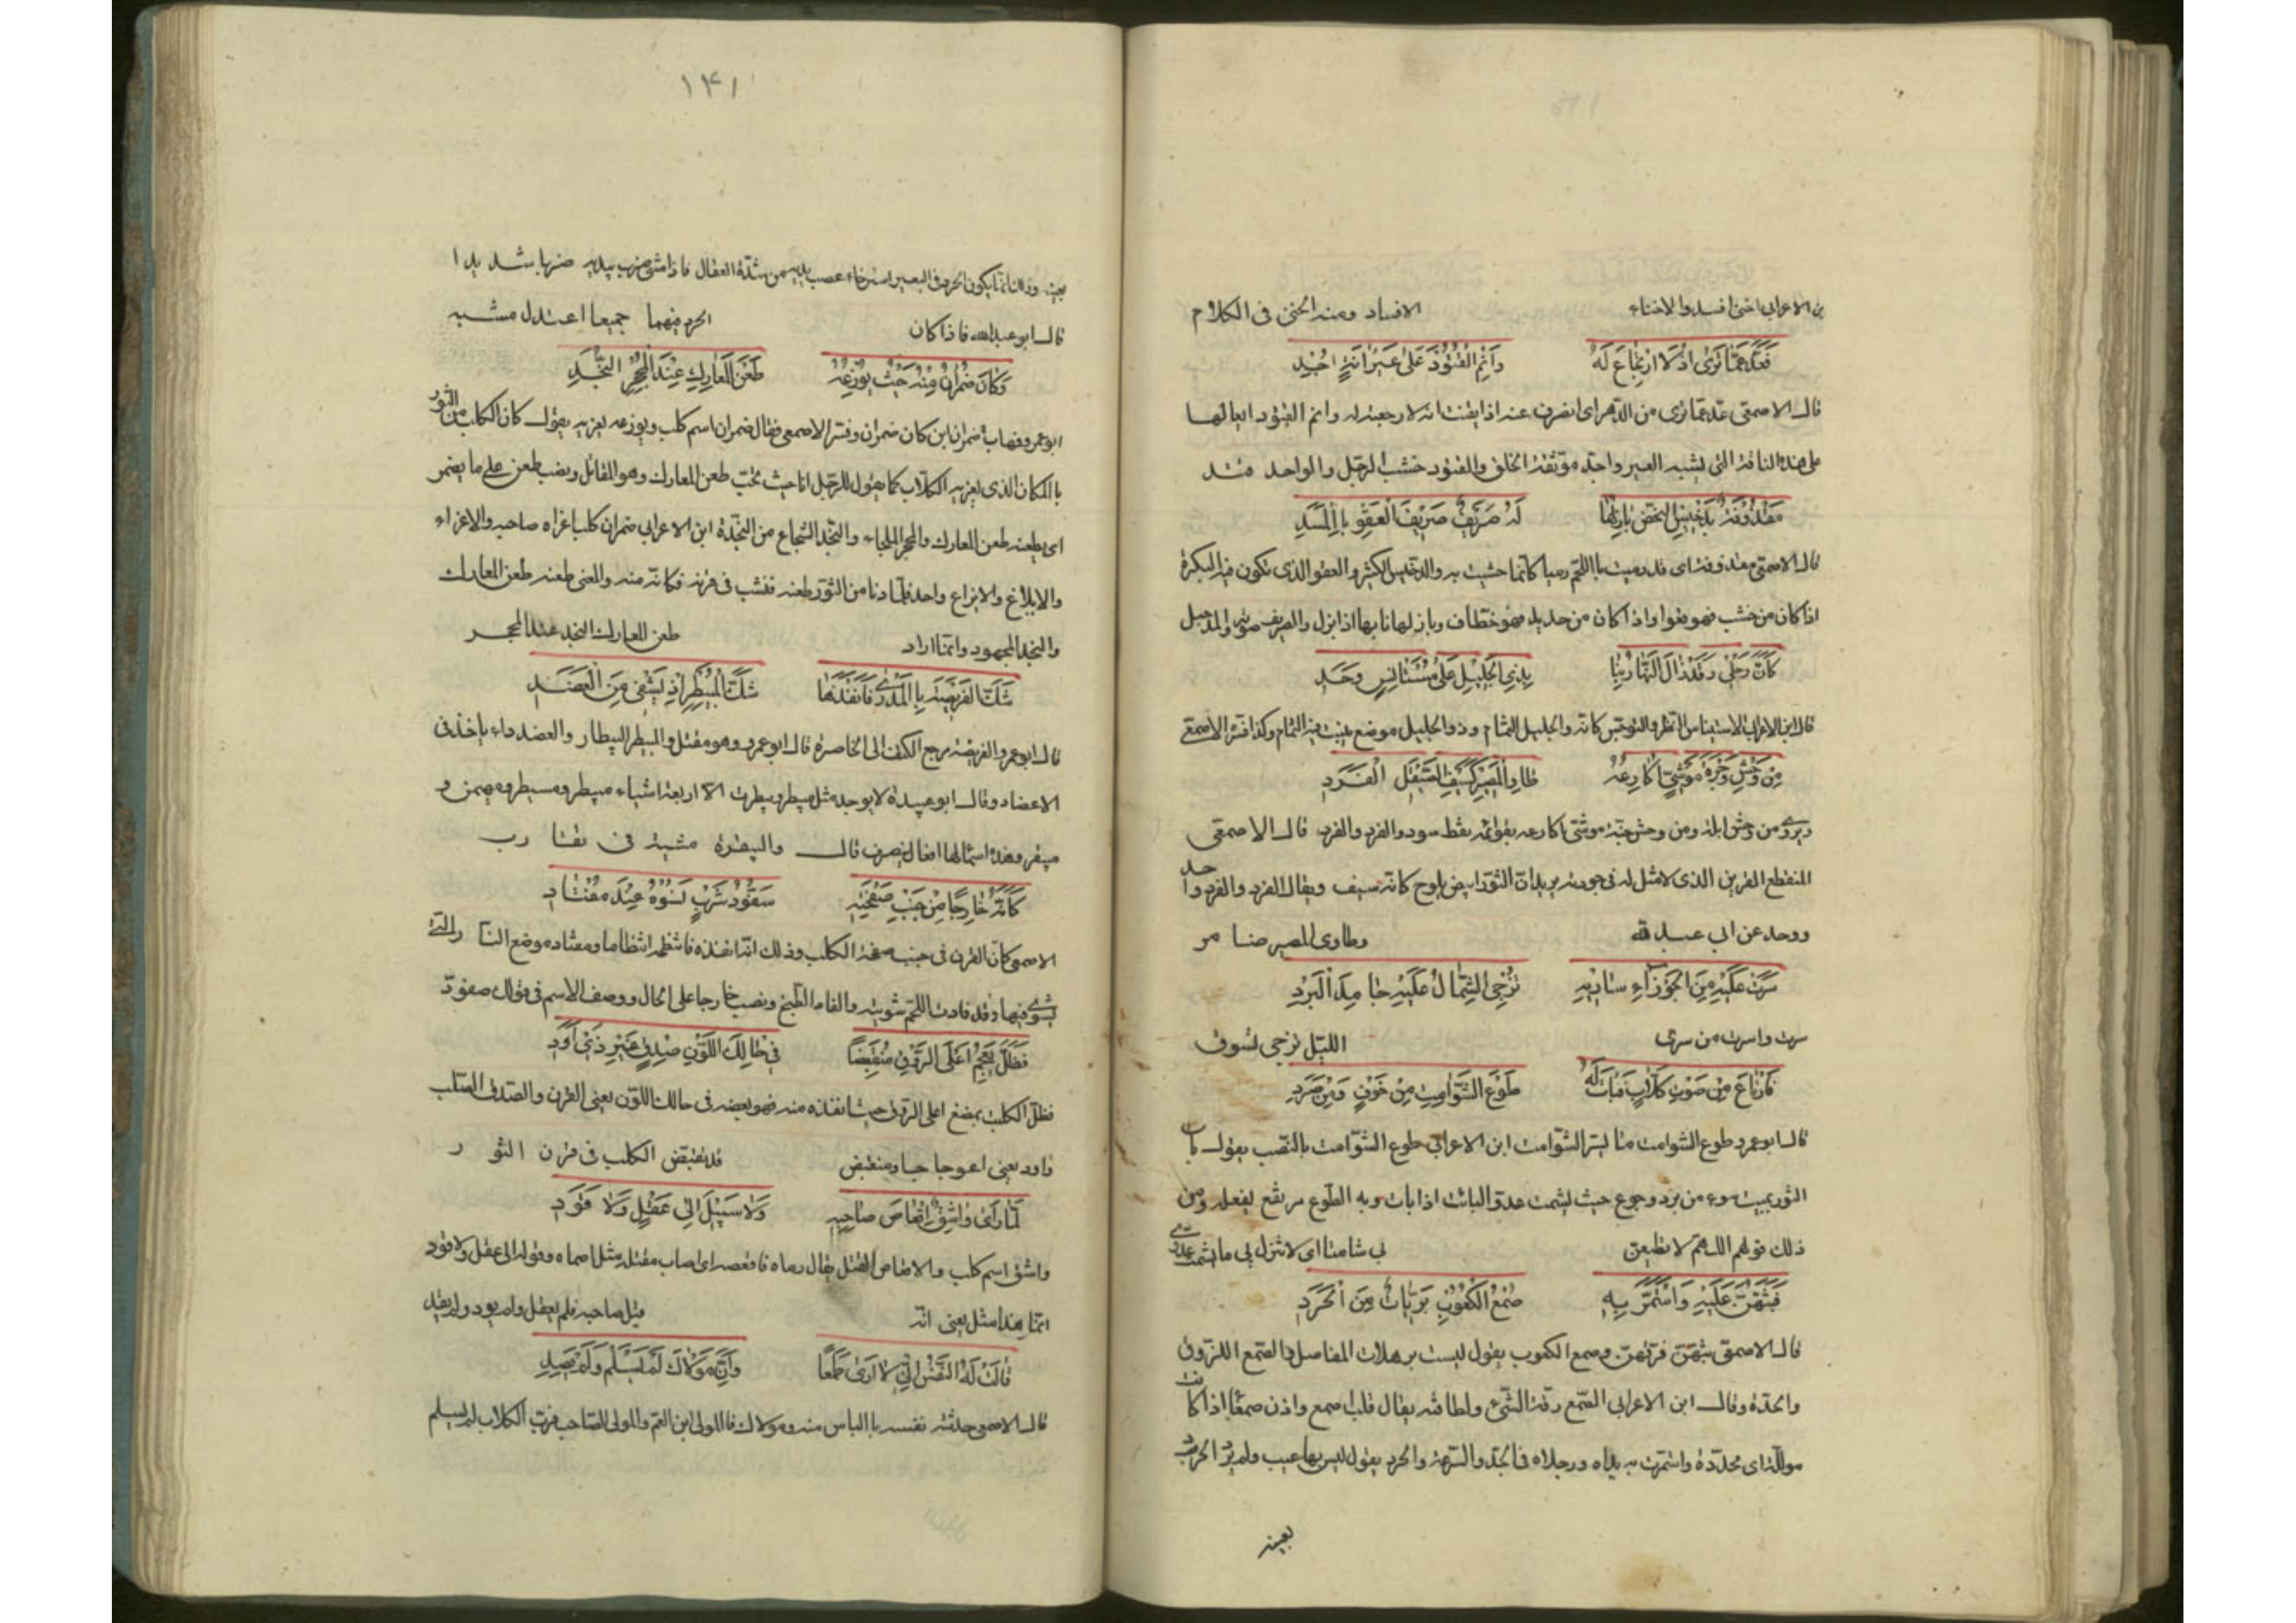 بن الاعرابی اخنی افسد والاخناء الافساد ومنه الخنی فی الکلام
فَعَدِّ عَمَّا تَرَی اذ لَا ارتِجَاعَ لَهُ وَانمِ القُتُودَ عَلی عَیرانَةٍ اجُدِ
قال الاصمعی عد عما تری من الدهر ای انصرف عنه اذ ایقنت انه لا رجعة له وانم القتود ای عالها
علی هذه الناقة التی تشبه العیر واجد موثقة الخلق والقتود خشب الرحل والواحد قتد
مَقذُوفَةٍ بِدَخِیسِ النَحضِ بازِلُها لَهُ صَرِیفٌ صَرِیفَ القَعوِ باالمَسَدِ
قال الاصمعی مقذوفة ای قد رمیت باللحم رمیا کانما حشیت به والدخیس الکثیر والقعو الذی تکون فیه البکرة
اذا کان من خشب فهو قعو واذا کان من حدید فهو خطاف وبازلها نابها اذا بزل والصریف صوته والمد حبل
کَاَنَّ رَحلی وَقَد زَالَ النَّهارُ بِنا بِذِی الجَلِیلِ عَلَی مُستَانِسٍ وَحَدِ
قال ابن الاعرابی الاستیناس النظر والتوجس کانه والجلیل الثمام وذو الجلیل موضع ینبت فیه الثمام وکذا فسر الاصمعی
مِن وَحشِ وَجرَةَ مَوشِیٍّ اکارِعُهُ طاوِی المَصِیرِ کَسَیفِ الصَیقَلِ الفَرَدِ
ویروی من وحش ابلة ومن وحش جبة موشی اکارعه بقوائمه نقط سود والفرد والفرد قال الاصمعی
المنقطع القرین الذی لا مثل له فی جودته یرید ان الثور ابیض یلوح کانه سیف ویقال الفرد والفرد واحد
ووحد عن ابی عبد الله وطاوی المصیر ضامر
سَرَت عَلَیهِ مِنَ الجَوزاءِ سارِیةٌ تُزجِی الشِمَالُ عَلَیهِ جَامِدَ البَرَدِ
سرت واسرت من سری اللیل تزجی تسوق
فَارتاعَ مِن صَوتِ کَلَّابٍ فَبَاتَ لَهُ طَوعُ الشَّوامِتِ مِن خَوفٍ وَمِن صَرَدِ
قال ابو عمرو طوع الشوامت ما یسر الشوامت ابن الاعرابی طوع الشوامت بالنصب یقول بات
الثور بمبیت سوء من برد وجوع حیث یشمت عدو البائت اذا بات وبه الطوع مرتفع بفعله ومن
ذلک قولهم اللهم لا تطیعن بی شامتا ای لا تنزل بی ما یشمت عدوی
فَبَثَّهُنَّ عَلَیهِ وَاستَمَرَّ بِهِ صُمعُ الکُعُوبِ بَرِیاتٌ مِنَ الحَرَدِ
قال الاصمعی بثهن فرقهن وصمع الکعوب یقول لیست برهلات المفاصل والصمع اللزوق
والحدة وقال ابن الاعرابی الصمع دقة الشیء ولطافته یقال قلب اصمع واذن صمعا اذا کانت
مؤللة ای محددة واستمرت به یداه ورجلاه فی الجد والسرعة والحرد یقول لیس بها عیب ولم یرد الحرد
بعینه
۱۴۱
بعینه وذلک انما یکون الحرد فی البعیر استرخاء عصب یدیه من شدة العقال فاذا مشی ضرب بیدیه ضربا شدیدا
قال ابو عبد الله فاذا کان الحرد فیهما جمیعا اعتدل مشیه
وَکَانَ ضُمرانُ مِنهُ حَیثُ یُوزِعُهُ طَعنَ المُعارِکِ عِندَ المُحجَرِ النَّجُدِ
ابو عمرو فهاب ضمران ابن کان ضمران وفسر الاصمعی فقال ضمران اسم کلب ویوزعه یغریه یقول کان الکلب من الثور
باالمکان الذی یغریه الکلاب کما یقول للرجل انا حیث تحب طعن المعارک وهو المقاتل ونصب طعن علی ما یضمر
ای یطعنه طعن المعارک والمحجر الملجاء والنجد الشجاع من النجدة ابن الاعرابی ضمران کلب اغراه صاحبه والاغراء
والایلاغ والایزاع واحد فلما دنا من الثور طعنه فنشب فی قرنه فکانه منه والمعنی طعنه طعن المعارک
والنجد المجهود وانما اراد طعن المعارک النجد عند المحجر
شَکَّ الفَرِیصَةَ بِاالمِدرَی فَانفَذَها شَکَّ المُبَیطِرِ اِذ یَشفِی مِنَ العَضَدِ
قال ابو عمرو الفریصة مرجع الکتف الی الخاصرة قال ابو عمرو وهو مقتل والمبیطر البیطار والعضد داء یاخذ فی
الاعضاد وقال ابو عبیدة لا یوجد مثل مبیطر وبیطرت الا اربعة اشیاء مبیطر ومسیطر ومهیمن و
مبیقر وهذه اسمائها افعال یصرف قال والبیقرة مشیة فی تقارب
کَاَنَّهُ خَارِجًا مِن جَنبِ صَفحَتِهِ سَفُّودُ شَربٍ نَسُوهُ عِندَ مُفتَادِ
الاصمعی کان القرن فی جنب صفحة الکلب وذلک انه انفذه فانتظمه انتظاما ومفتاده موضع النار التی
یشوی فیها وقد فادت اللحم شویته والفاء الطبخ ونصب خارجا علی الحال ووصف الاسم فی قولک صفود
فَظَلَّ یَعجُمُ اَعلَی الرَّوقِ مُنقَبِضًا فی حَالِکِ اللَّونِ صَدقٍ غَیرِ ذِی اَوَدِ
فظل الکلب یمضغ اعلی الروق حیث انفذه منه فهو یعضه فی حالک اللون یعنی القرن والصدق الصلب
واود یعنی اعوجاجا ومنقبض قد تقبض الکلب فی قرن الثور
لَمّا رَاَی واشِقٌ اِقعاصَ صاحِبِهِ وَلَا سَبِیلَ اِلی عَقلٍ وَلا قَوَدِ
واشق اسم کلب والاقعاص القتل یقال رماه فاقعصه ای اصاب مقتله مثل اصماه وقوله الی عقل ولا قود
انما هذا مثل یعنی انه قتل صاحبه فلم یعقل ولم یود ولم یقد
قالَت لَهُ النَّفسُ اِنّی لا اَرَی طَمَعًا وَاِنَّ مَولاکَ لَم یَسلَم وَلَم یَصِدِ
قال الاصمعی حدثته نفسه باالیاس منه ومولاک فاالمولی ابن العم والمولی الصاحب فرب الکلاب لم یسلم